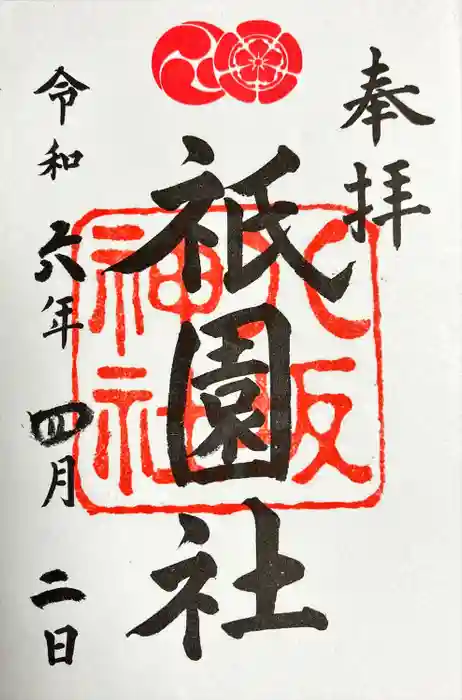 奉拝
八坂
神社
祇園社
令和六年四月二日